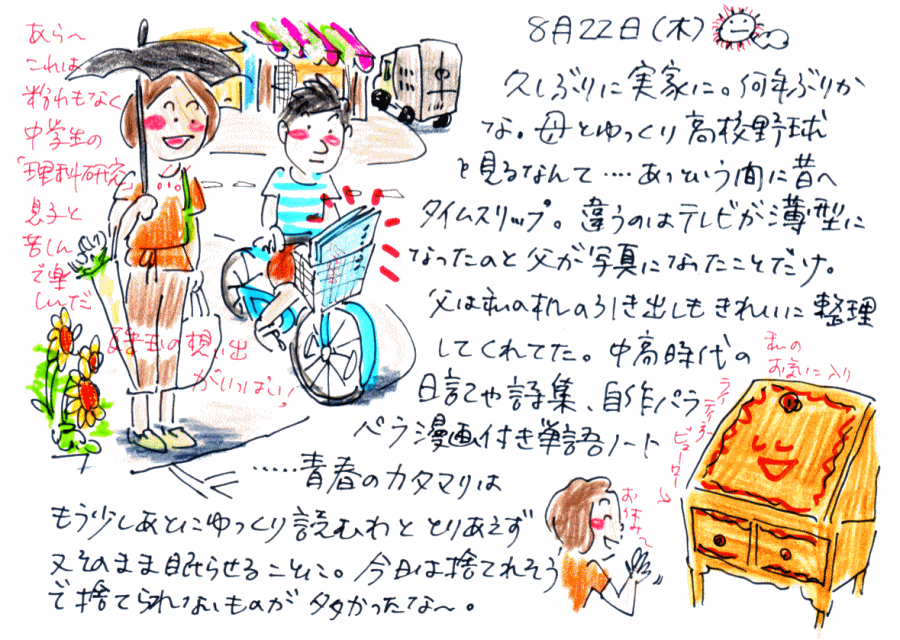 8月22日(木)
久しぶりに実家に。何年ぶりか
な。母とゆっくり高校野球
を見るなんて……あっという間に昔へ
タイムスリップ。違うのはテレビが薄型に
なったのと父が写真になったことだけ。
父は私の机の引き出しもきれいに整理
してくれてた。中高時代の
日記や詩集、自作パラ
パラ漫画付き単語ノート
……青春のカタマリは
もう少しあとにゆっくり読むわととりあえず
又そのまま眠らせることに。今日は捨てれそう
で捨てられないものが多かったな〜。
あら〜
これは
紛れもなく
中学生の
「理科研究」
息子と
苦しん
で楽
しんだ
の想い出
がいっぱい!
私の
お気に入り
ライティング
ビューロー
お休み〜